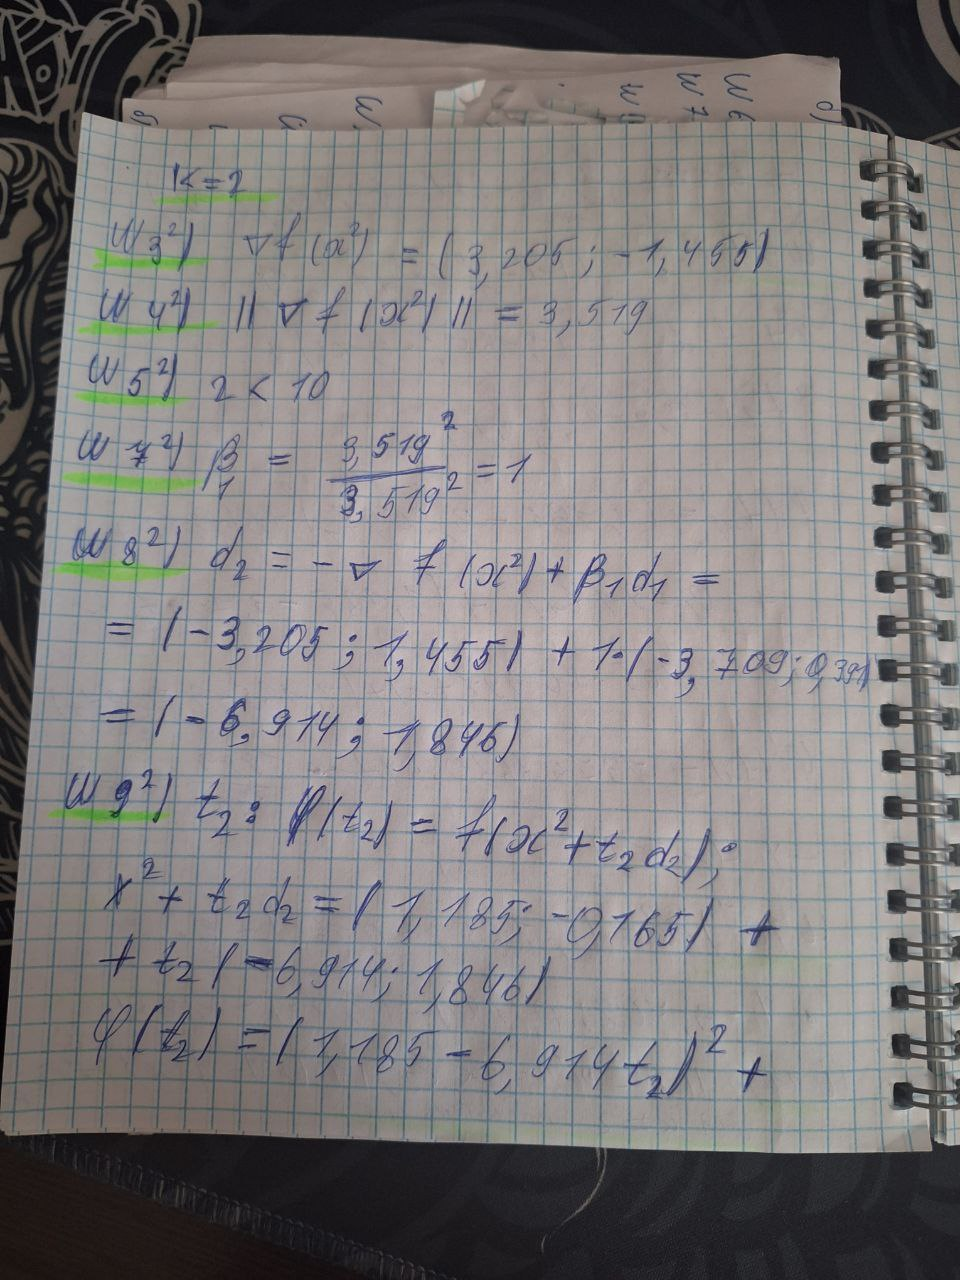 K=2
Ш3²) ∇f(x²) = (3,205; -1,455)
Ш4²) ||∇f(x²)|| = 3,519
Ш5²) 2 < 10
Ш7²) β₁ = 3,519² / 3,519² = 1
Ш8²) d₂ = -∇f(x²) + β₁d₁ =
= (-3,205; 1,455) + 1·(-3,709; 0,391)
= (-6,914; 1,846)
Ш9²) t₂: φ(t₂) = f(x² + t₂d₂);
x² + t₂d₂ = (1,185; -0,165) +
+ t₂(-6,914; 1,846)
φ(t₂) = (1,185 - 6,914t₂)² +